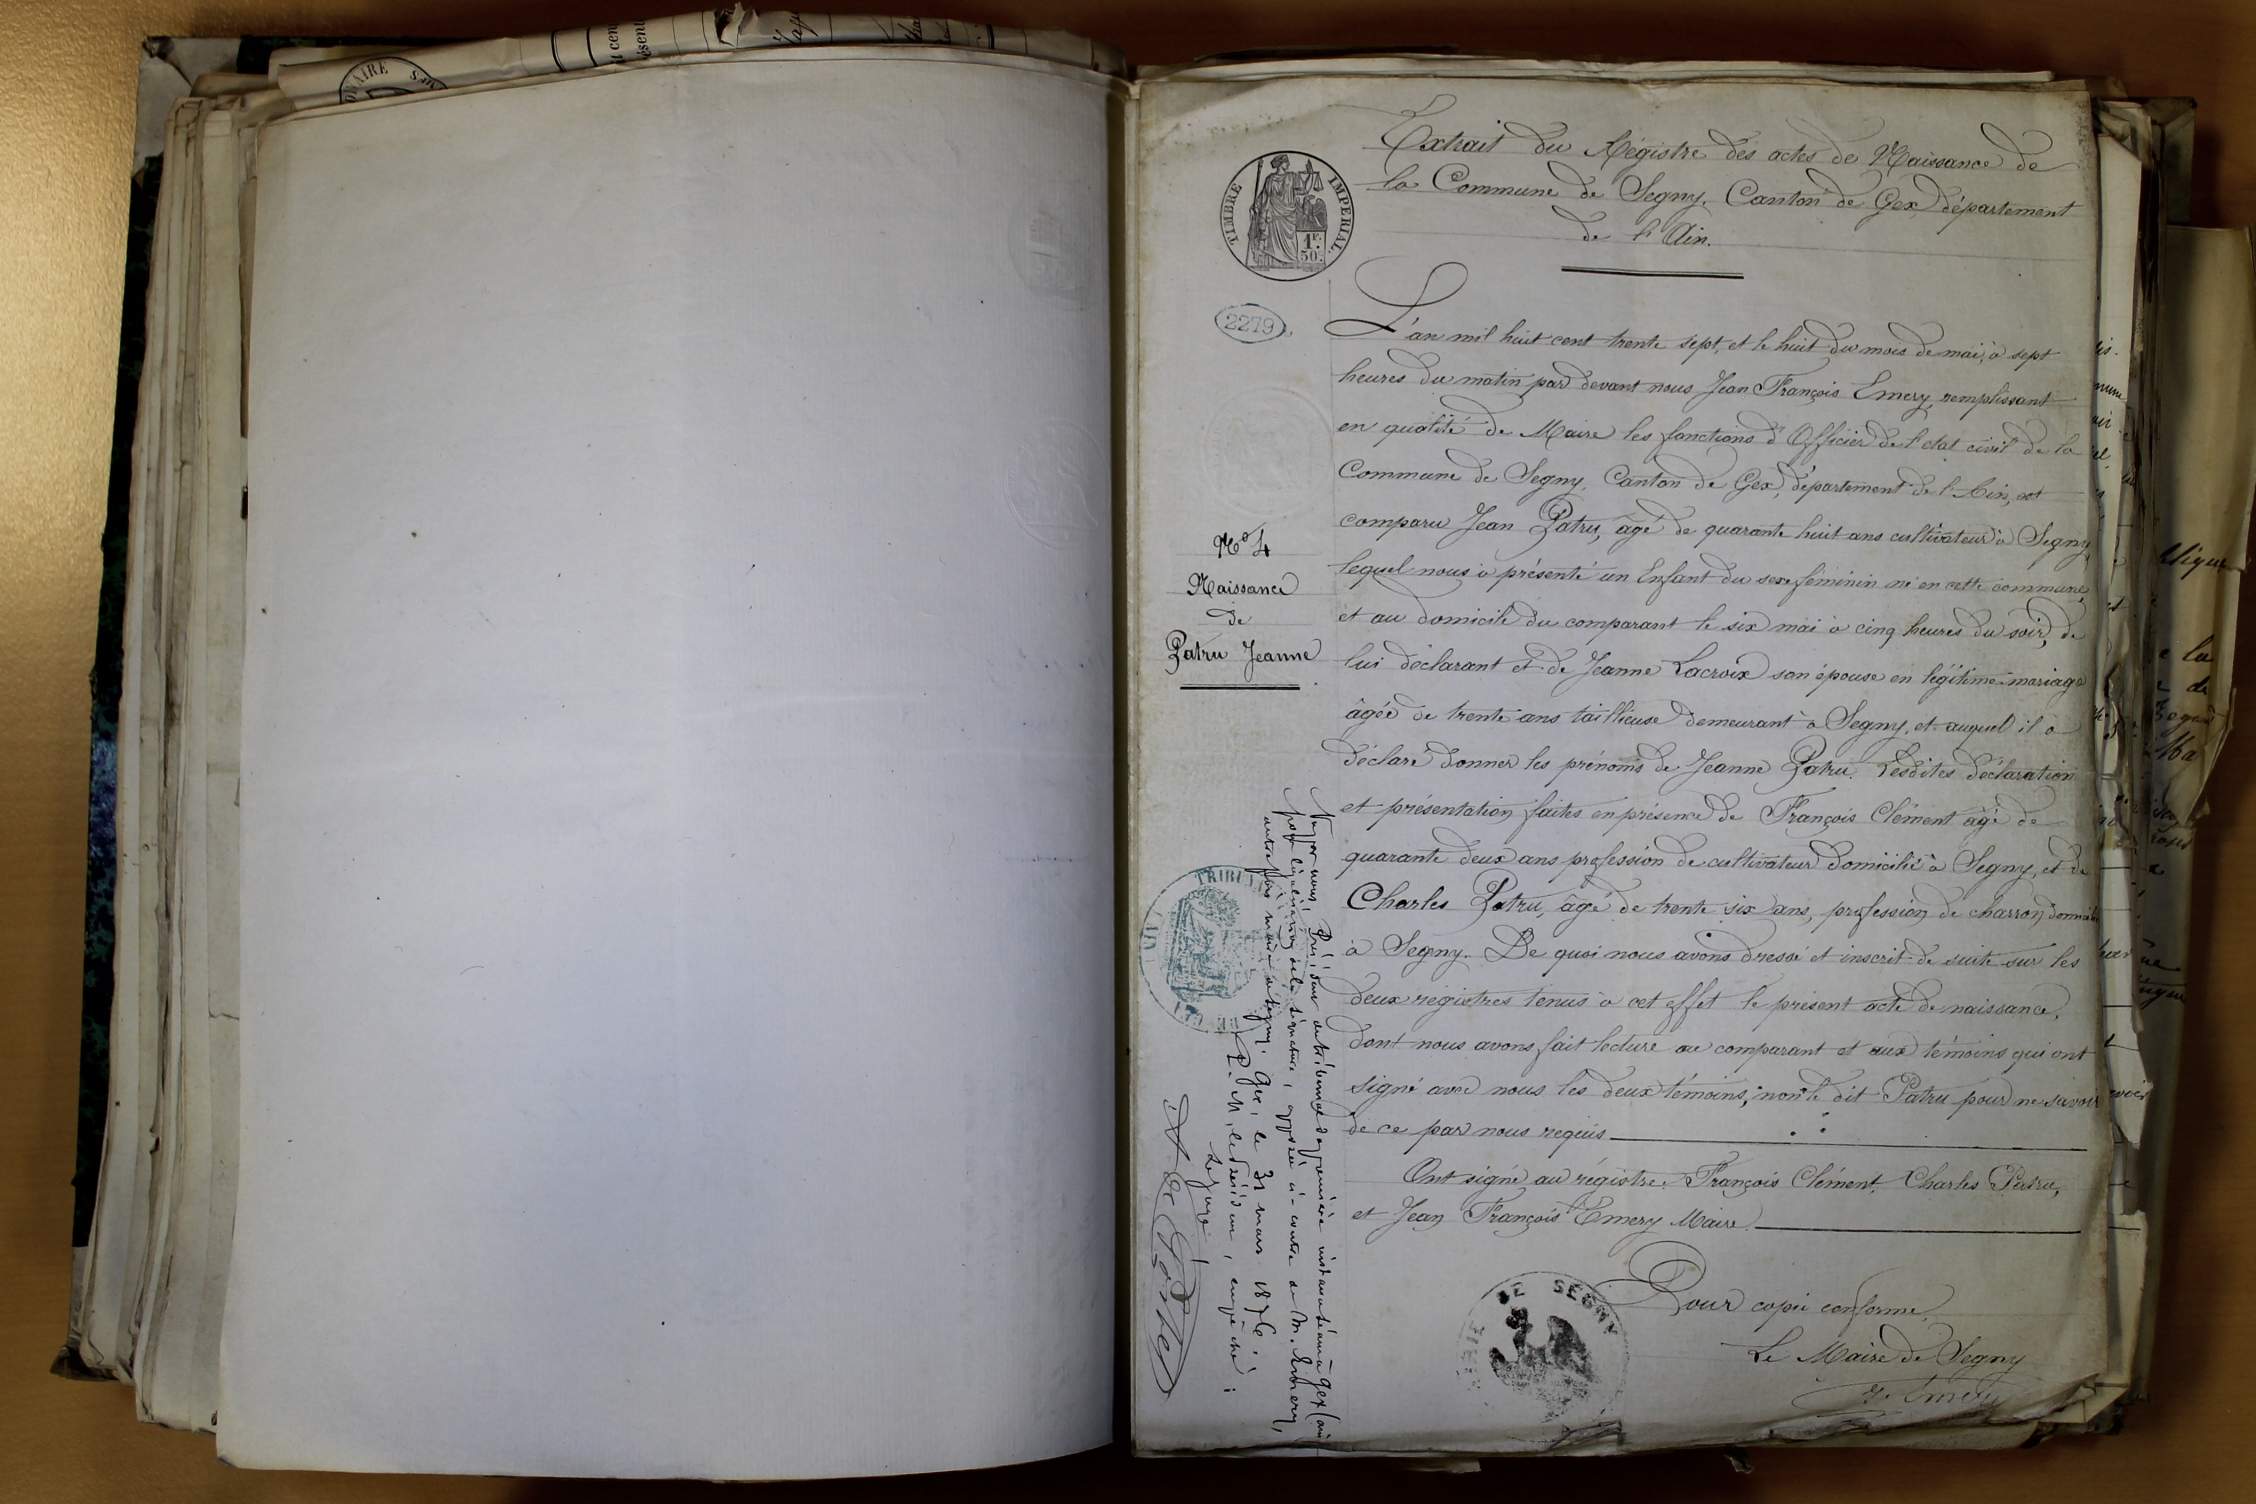 Extrait du Régistre des actes de Naissance de
la Commune de Segny, Canton de Gex, département
de l'Ain.
TIMBRE IMPERIAL
1F.
50c.
2279
L'an mil huit cent trente sept, et le huit du mois de mai, à sept
heures du matin par devant nous Jean François Emery, remplissant
en qualité de Maire les fonctions d'Officier de l'état civil de la
Commune de Segny, Canton de Gex, département de l'Ain, est
comparu Jean Patru, âgé de quarante huit ans cultivateur à Segny
lequel nous a présenté un Enfant du sexe féminin né en cette commune,
et au domicile du comparant le six mai à cinq heures du soir, de
lui déclarant et de Jeanne Lacroix son épouse en légitime mariage
âgée de trente ans taillieuse demeurant à Segny, et auquel il a
déclaré donner les prénoms de Jeanne Patru. Lesdites déclaration
et présentation faites en présence de François Clément âgé de
quarante deux ans profession de cultivateur domicilié à Segny, et de
Charles Patru, âgé de trente six ans, profession de charron domicilié
à Segny. De quoi nous avons dressé et inscrit de suite sur les
deux régistres tenus à cet effet le présent acte de naissance,
dont nous avons fait lecture au comparant et aux témoins qui ont
signé avec nous les deux témoins, non le dit Patru pour ne savoir
de ce par nous requis
Ont signé au régistre: François Clément, Charles Patru,
et Jean François Emery Maire.
Pour copie conforme,
Le Maire de Segny
Emery
MAIRIE DE SEGNY
N° 4
Naissance
de
Patru Jeanne
Vu par nous, Président du tribunal de première instance séant à Gex (ain
pour légalisation de la signature, apposée ci-contre de M. Emery,
autrefois maire à Segny. Gex, le 31 mars 1876
P. M. le Président, empêché;
Le juge
TRIBU